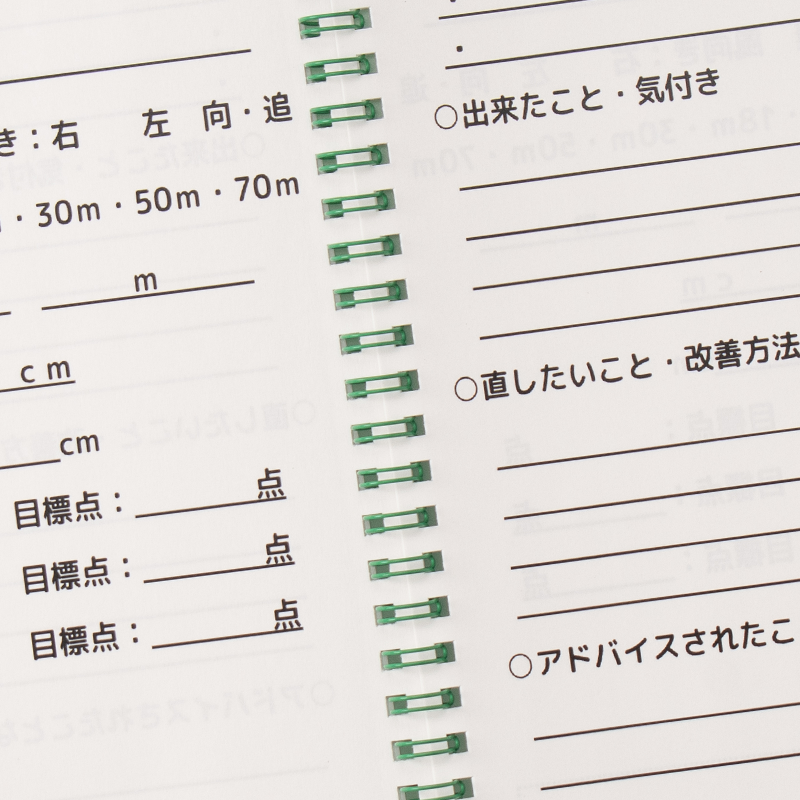 き：右　左　向・追
・30m・50m・70m
m
cm
cm
目標点：　点
目標点：　点
目標点：　点
・
○出来たこと・気付き
○直したいこと・改善方法
○アドバイスされたこ